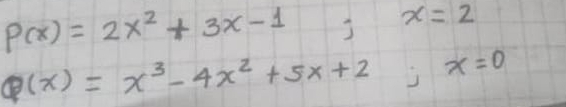 P(x) = 2x² + 3x - 1 ; x = 2
Q(x) = x³ - 4x² + 5x + 2 ; x = 0